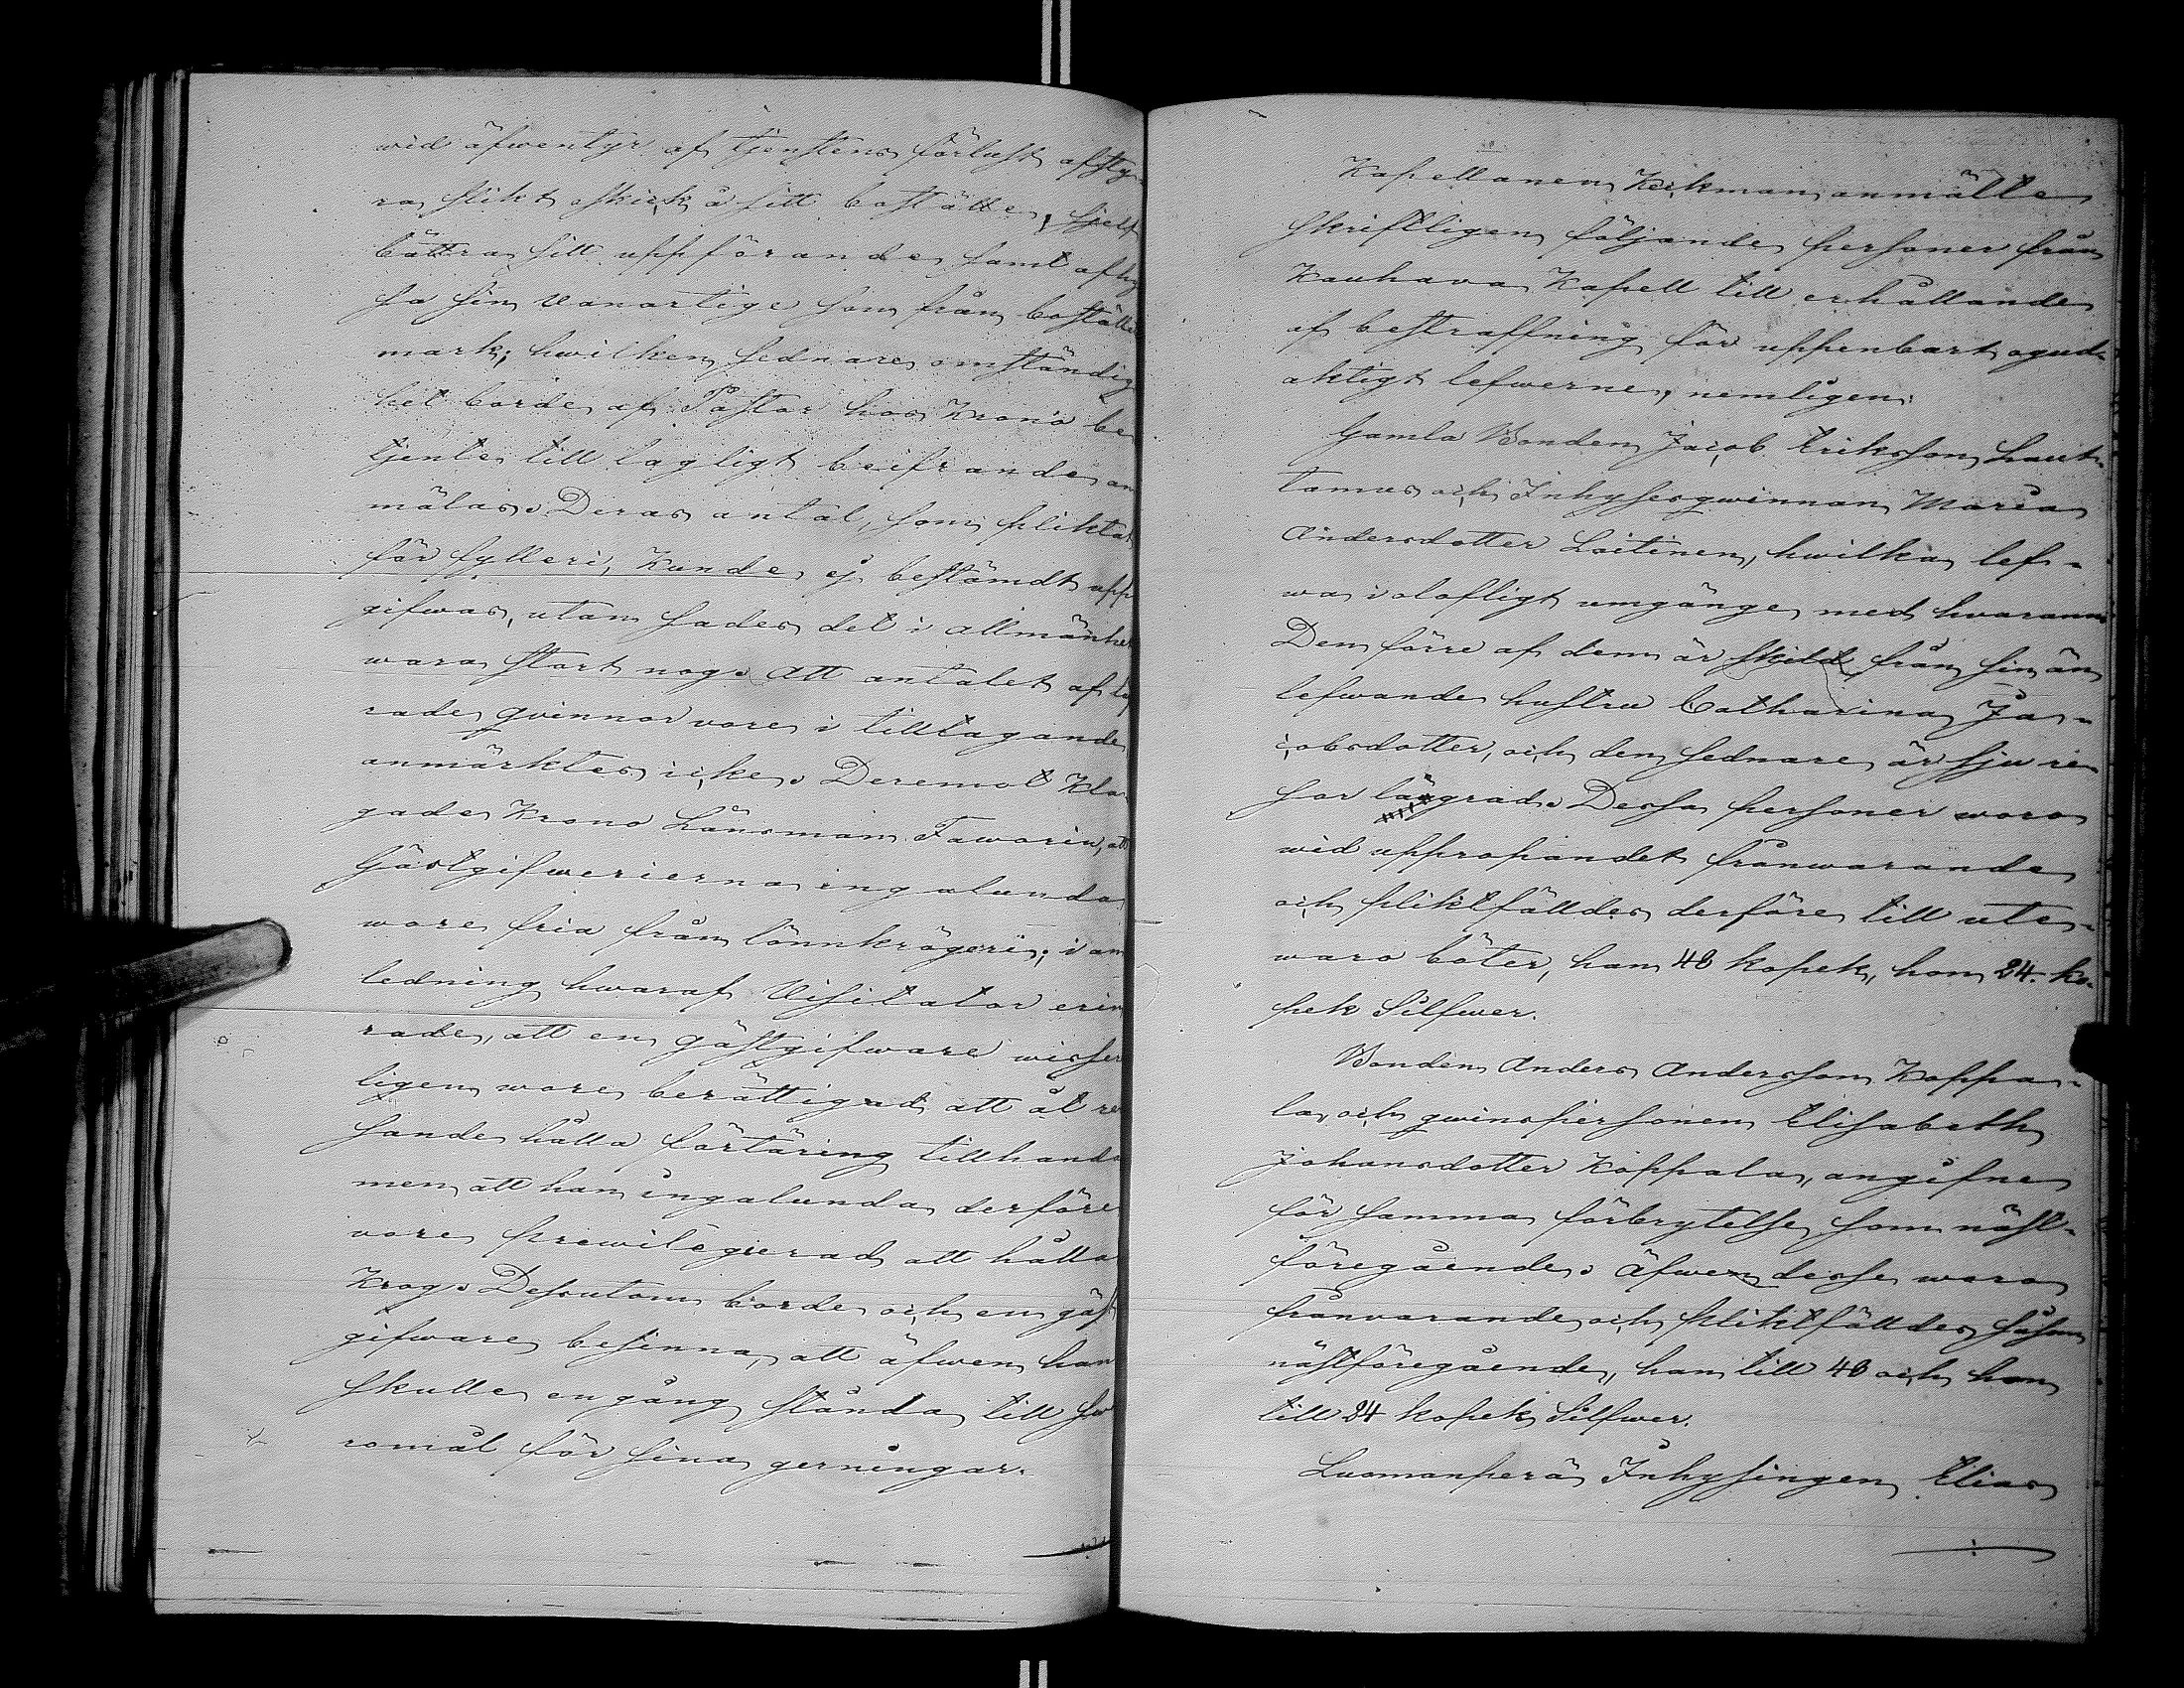 wid äfwentyr af tjenstens förlust afsty-
ra slikt skick å sitt boställe, sjelf
bättra sitt uppförande samt afhy
sa sin vanartige son från boställs
mark; hwilken sednare omständig
het borde af Pastor hos Krono be
tjente till lagligt beifrande an
mälas. Deras antal, som pliktat
för fylleri, kunde ej bestämdt upp
gifwas, utan sades det i allmänhet
wara stort nog. Att antalet af läg
rade qvinnor vore i tilltagande
anmärktes icke. Deremot kla
gade Krono Länsman Favorin, att
Gästgifwerierna ingalunda
wore fria från lönnkrögeri; i an
ledning hwaraf Visitator erin
rade, att en gästgifware wisser
ligen wore berättigad att åt re
sande hålla förtäring tillhanda
men att han ingalunda derföre
vore previlegierad att hålla
Krog. Dessutom borde och en gäst
gifware besinna, att äfwen han
skulle en gång stånda till sw
romål för sina gerningar.
Kapellanen Keckman anmälte
skriftligen följande personer från
Kauhava Kapell till erhållande
af bestraffning för uppenbart ogud-
aktigt lefwerne, nemligen:
Gamla Bonden Jacob Eriksson Haut-
tamus och Inhysesqwinnan Maria
Andersdotter Loitinen, hwilka lef-
wa i olofligt umgänge med hwarann.
Den förre af dem är skild från sin än
lefwande hustru Catharina Ja-
cobsdotter, och den sednare är sju re-
sor lägrad. Dessa personer woro
wid uppropandet frånwarande
och pliktfälldes derföre till ute-
waro böter, han 48 kopek, hon 24. ko-
pek Silfwer.
Bonden Anders Andersson Koppa-
la, och qwinspersonen Elisabeth
Johansdotter Koppala, angifne
för samma förbrytelse som näst-
föregående. Äfwen desse woro
frånvarande och pliktfälldes såsom
nästföregående, han till 48 och hon
till 24 kopek Silfwer.
Luomanperä Inhysingen Elias